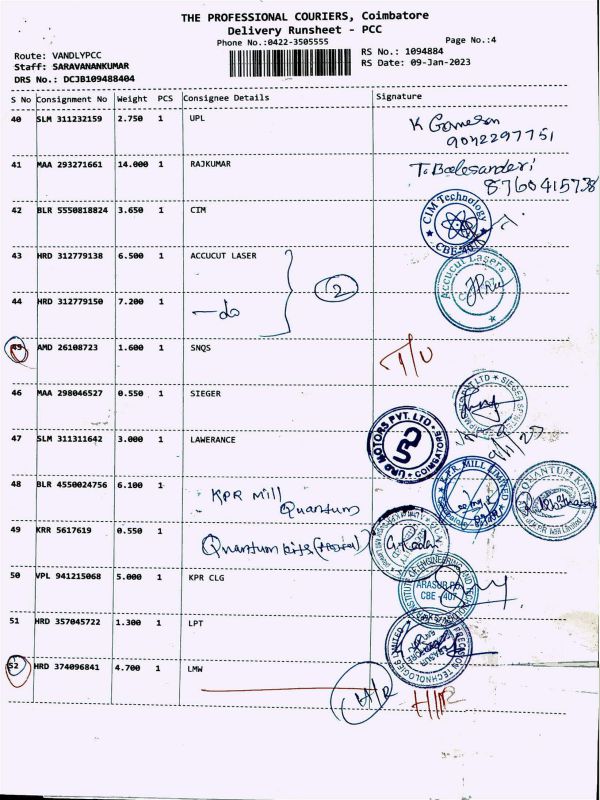 THE PROFESSIONAL COURIERS, Coimbatore
Delivery Runsheet - PCC
Phone No.:0422-3505555 Page No.:4
Route: VANDLYPCC RS No.: 1094884
Staff: SARAVANANKUMAR RS Date: 09-Jan-2023
DRS No.: DCJB109488404
S No Consignment No Weight PCS Consignee Details Signature
40 SLM 311232159 2.750 1 UPL
9042297751
41 MAA 293271661 14.000 1 RAJKUMAR
8760415738
42 BLR 5550818824 3.650 1 CIM
CIM Technology
43 HRD 312779138 6.500 1 ACCUCUT LASER
Accucut Lasers
2
44 HRD 312779150 7.200 1 -do
45 AMD 26108723 1.600 1 SNQS
T/U
46 MAA 298046527 0.550 1 SIEGER
47 SLM 311311642 3.000 1 LAWERANCE
MOTORS PVT. LTD COIMBATORE
48 BLR 4550024756 6.100 1 KPR Mill
Quantum
KPR MILL LIMITED
QUANTUM KNITS
49 KRR 5617619 0.550 1
50 VPL 941215068 5.000 1 KPR CLG
INSTITUTE OF ENGINEERING AND
ARASUR PO.
CBE - 407
51 HRD 357045722 1.300 1 LPT
PRECISION TECHNOLOGIES LIMITED
52 HRD 374096841 4.700 1 LMW
H/R
H/R